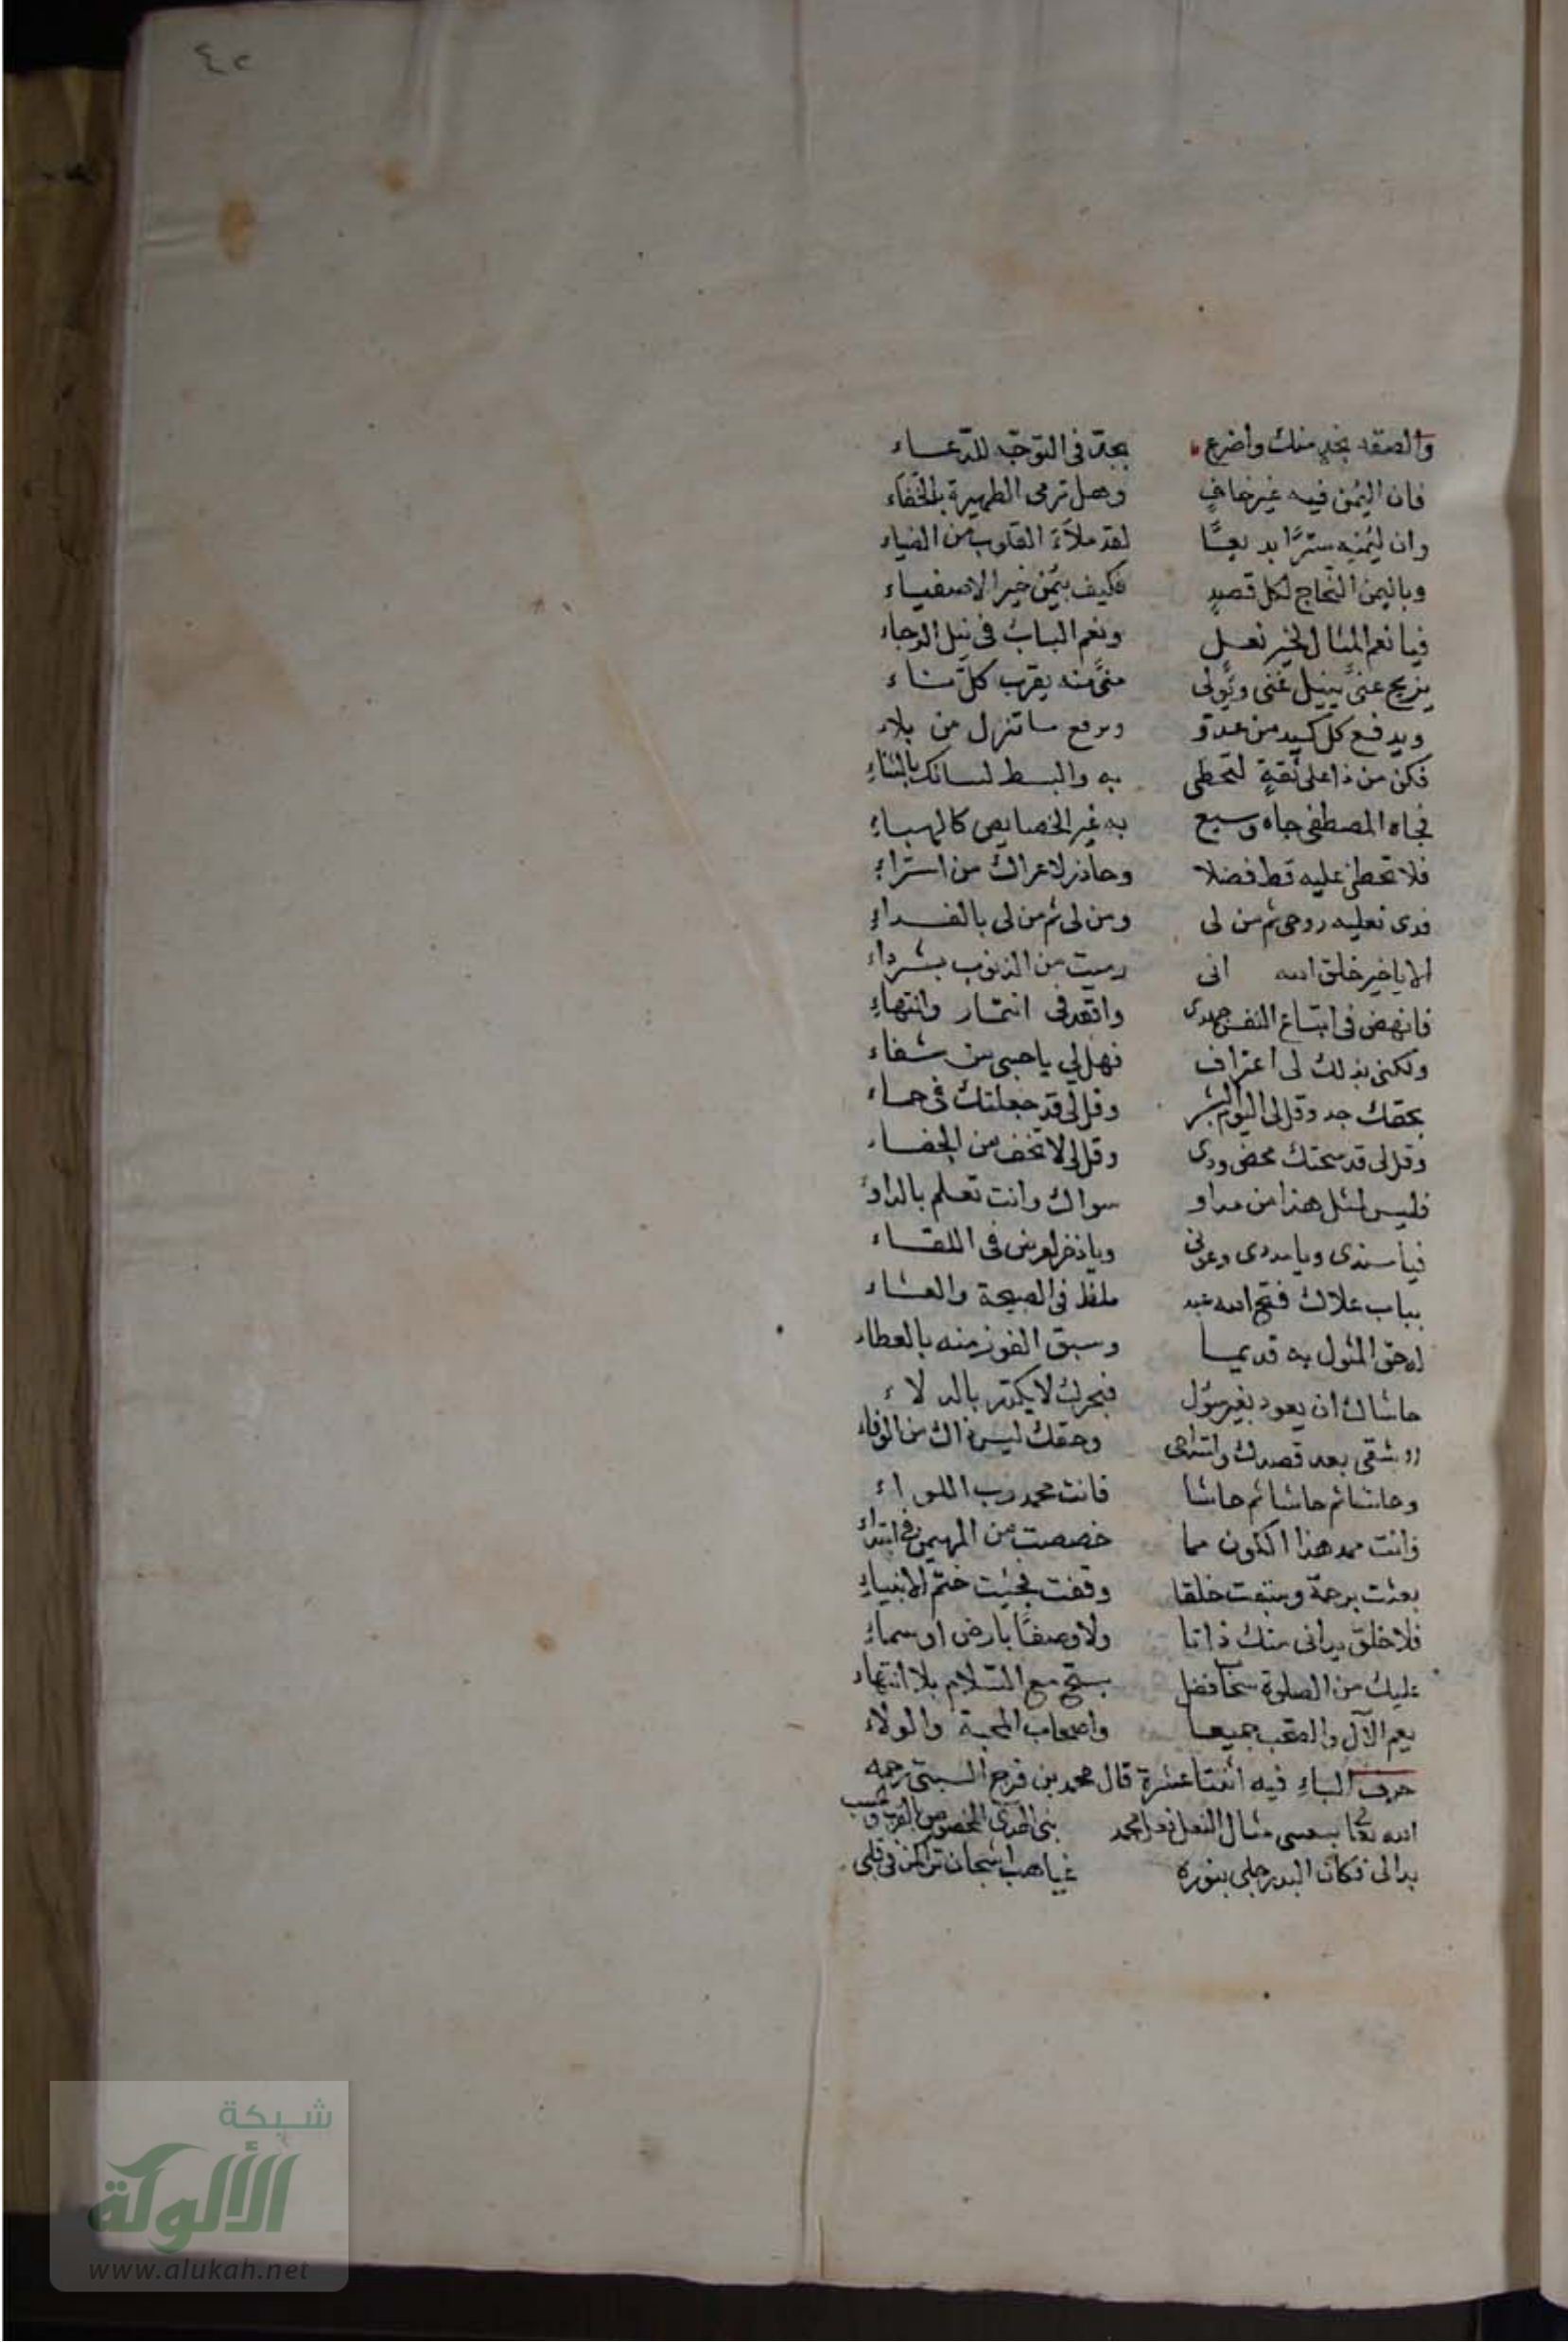 ٤٢
والصقه بخد منك واضرع بجد فى التوجه للدعاء
فان اليمن فيه غير خاف وهل ترمى الظهيرة بالخفاء
وان ليمنه سرا بديعا لقد ملأ القلوب من الضياء
وباليمن النجاح لكل قصد فكيف بيمن خير الاصفياء
فيا نعم المثال لخير نعل ونعم الباب فى نيل الرجاء
يزيح عنى ينيل غنى ويولى منى منه يقرب كل ناء
ويدفع كل كيد من عدو ويرفع ما تنزل من بلاء
فكن من ذا على ثقة لتحظى به والبسط لسانك بالثناء
فجاه المصطفى جاه وسيع به غير الخصايص كالهباء
فلا تحظى عليه قط فضلا وحاذر لاعراك من امتراء
فدى نعليه روحى ثم من لى ومن لى ثم من لى بالفداء
الا يا خير خلق الله انى رميت من الذنوب بشر داء
فانهض فى اتباع النفس جهدى واقعد فى ائتمار وانتهاء
ولكنى بذلك لى اعتراف فهل لي يا حبيبى من شفاء
بحقك جد وقل لى اليوم ابشر وقل لى قد جعلتك فى حماء
وقل لى قد منحتك محض ودى وقل لى لا تخف من الجفاء
فليس لمثل هذا من مداو سواك وانت تعلم بالداوء
فيا سندى ويا مددى وعونى ويا ذخرى فى اللقاء
بباب علاك فتح الله عبد ملظ فى الصبيحة والعشاء
له حق المثول به قديما وسبق الفوز منه بالعطاء
حاشاك ان يعود بغير سؤل فبحرك لا يكدر بالدلاء
يشقى بعد قصدك وامتداحى وحقك ليس ذاك من الوفاء
وحاشا ثم حاشا ثم حاشا فانت محمد رب اللواء
وانت ممد هذا الكون مما خصصت من المهيمن فى ابتداء
بعثت برحمة وسبقت خلقا وقفت فجئيت ختم الانبياء
فلا خلق يدانى منك ذاتا ولا وصفا بارض او سماء
عليك من الصلوة سحا فضل يسح مع السلام بلا انتهاء
يعم الآل والصحب جميعا واصحاب المحبة والولاء
حرف الباء فيه اثنتا عشرة قال محمد بن فرج السبتى رحمه
الله تعا مثال النعل نعل محمد نبى الهدى المخصوص بالقرب
بدا لى فكان البدر جلى بنوره غياهب اشجان تراكمن فى قلبى
شبكة
الألوكة
www.alukah.net